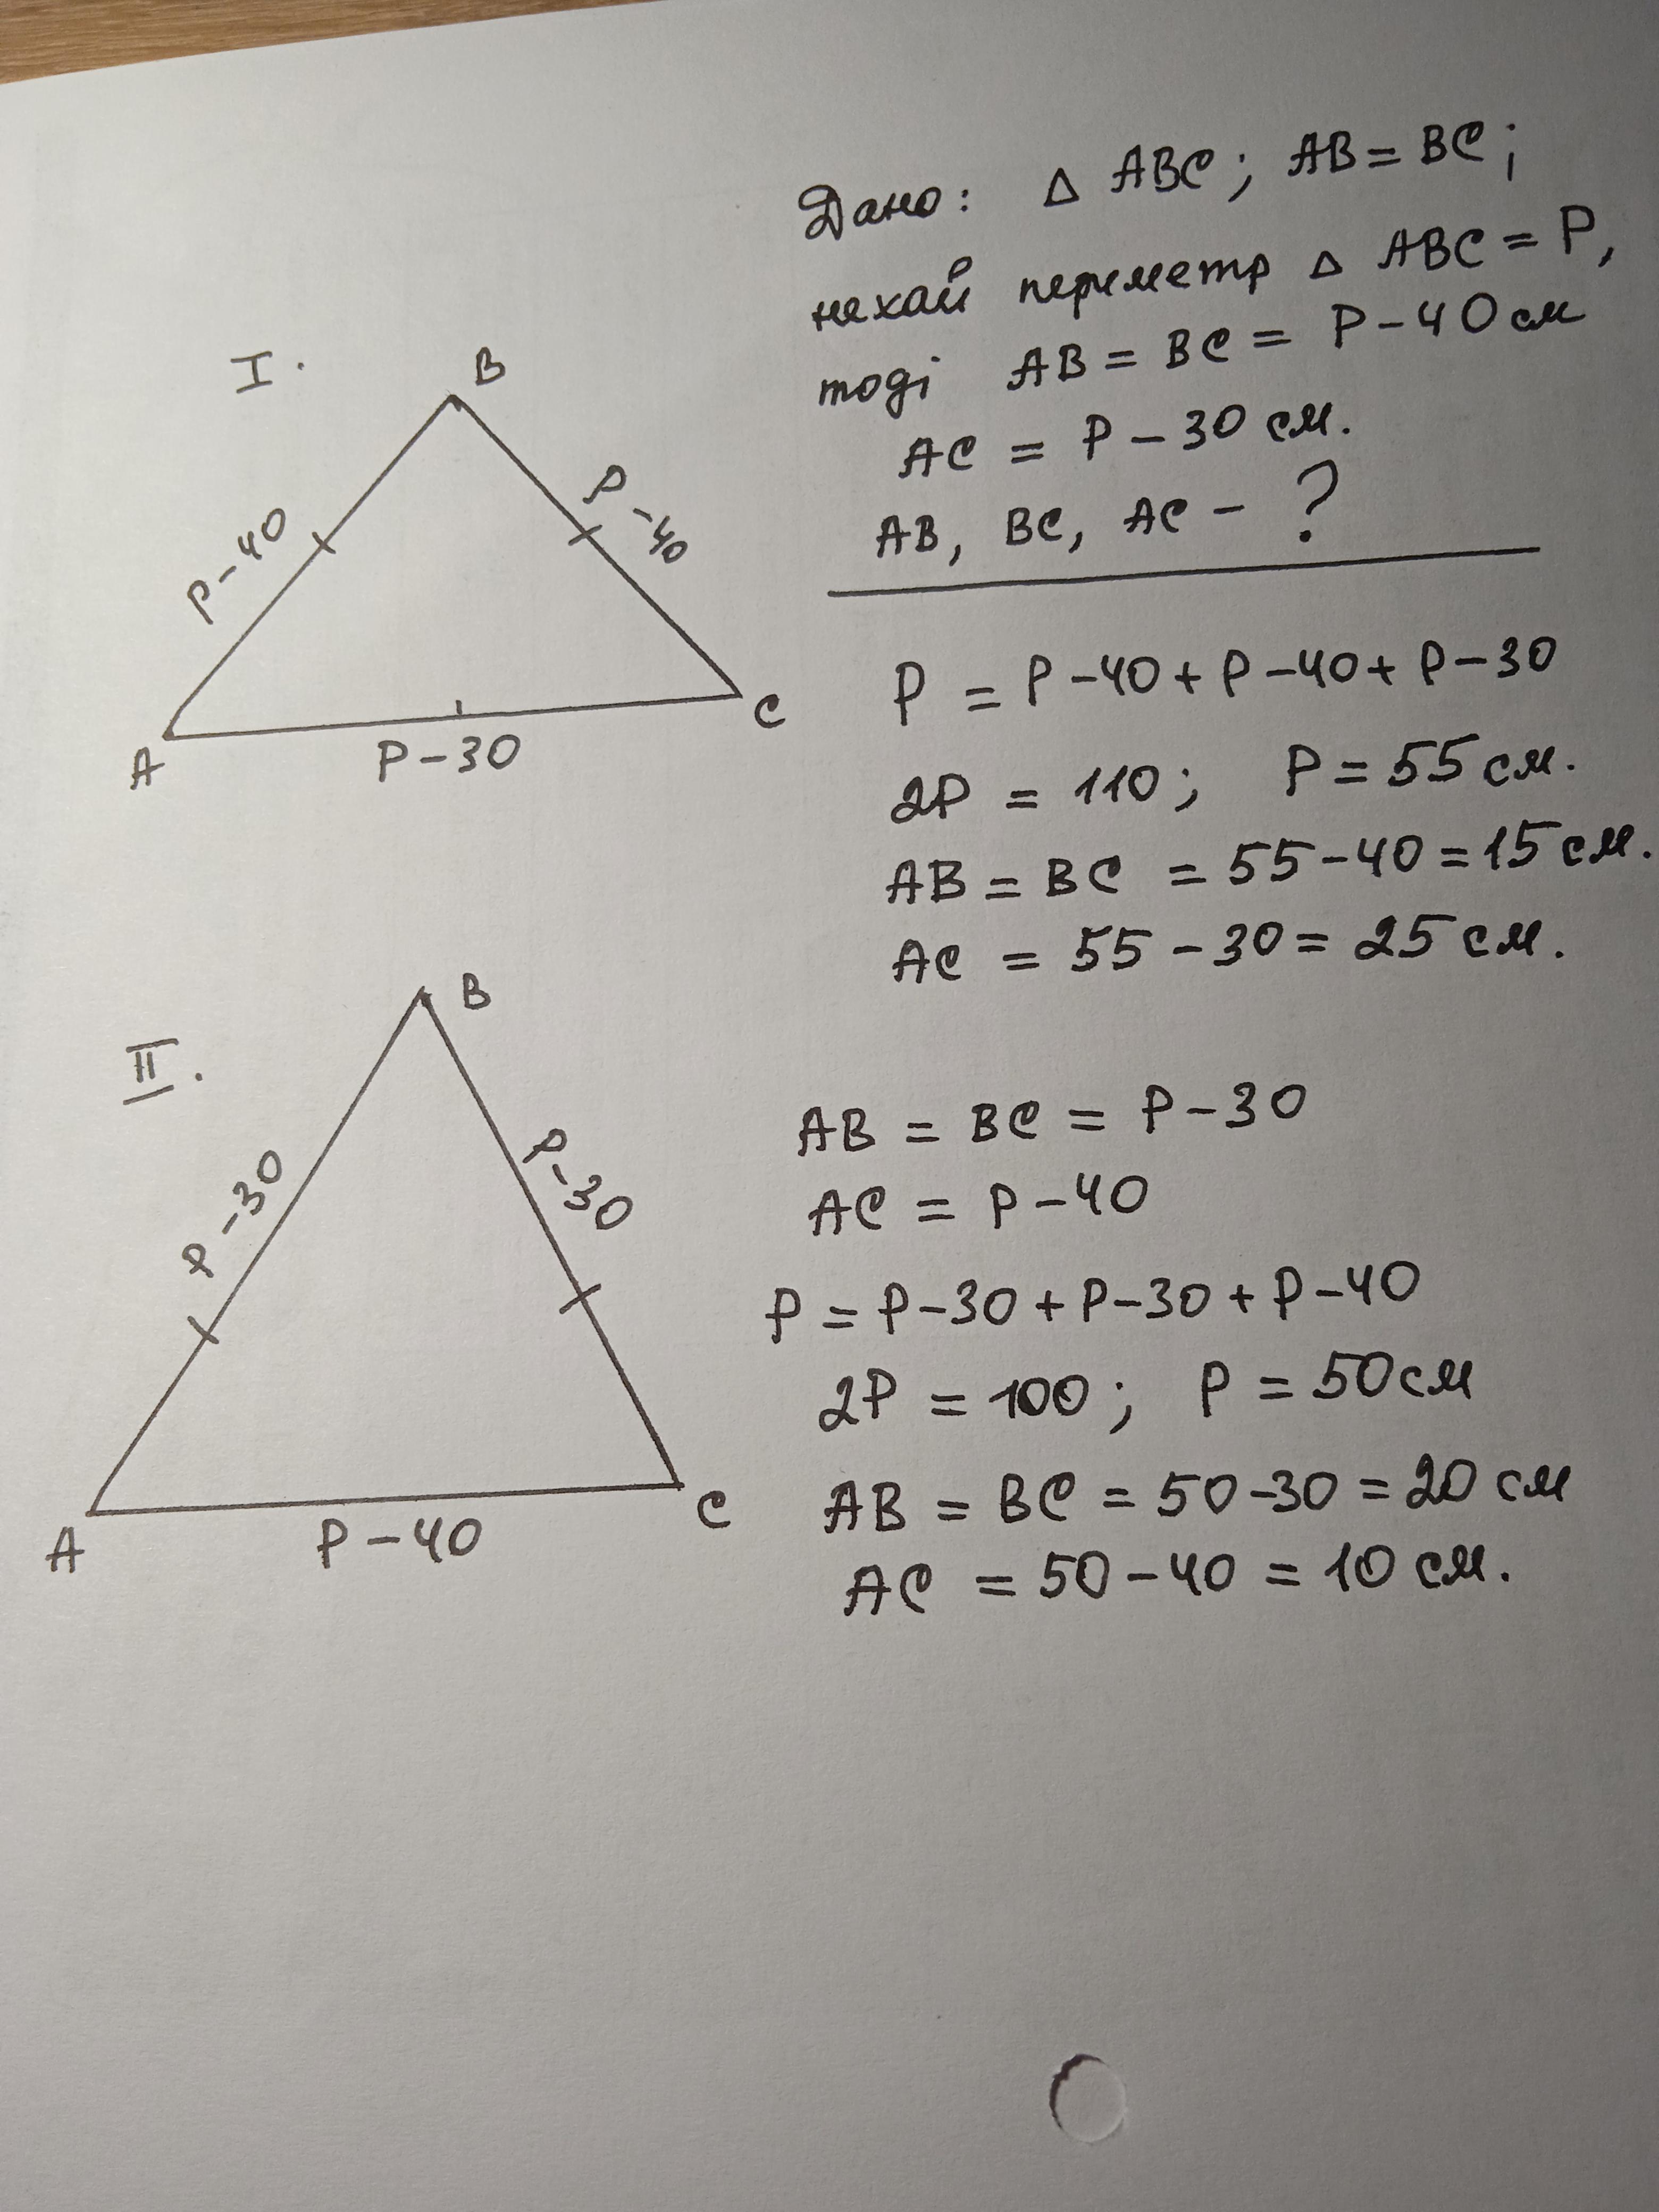 Дано: △ ABC; AB = BC;
нехай периметр △ ABC = P,
тоді AB = BC = P - 40 см
AC = P - 30 см.
AB, BC, AC - ?
I.
B
P - 40
P - 40
A
C
P - 30
P = P - 40 + P - 40 + P - 30
2P = 110; P = 55 см.
AB = BC = 55 - 40 = 15 см.
AC = 55 - 30 = 25 см.
II.
B
P - 30
P - 30
A
C
P - 40
AB = BC = P - 30
AC = P - 40
P = P - 30 + P - 30 + P - 40
2P = 100; P = 50 см
AB = BC = 50 - 30 = 20 см
AC = 50 - 40 = 10 см.